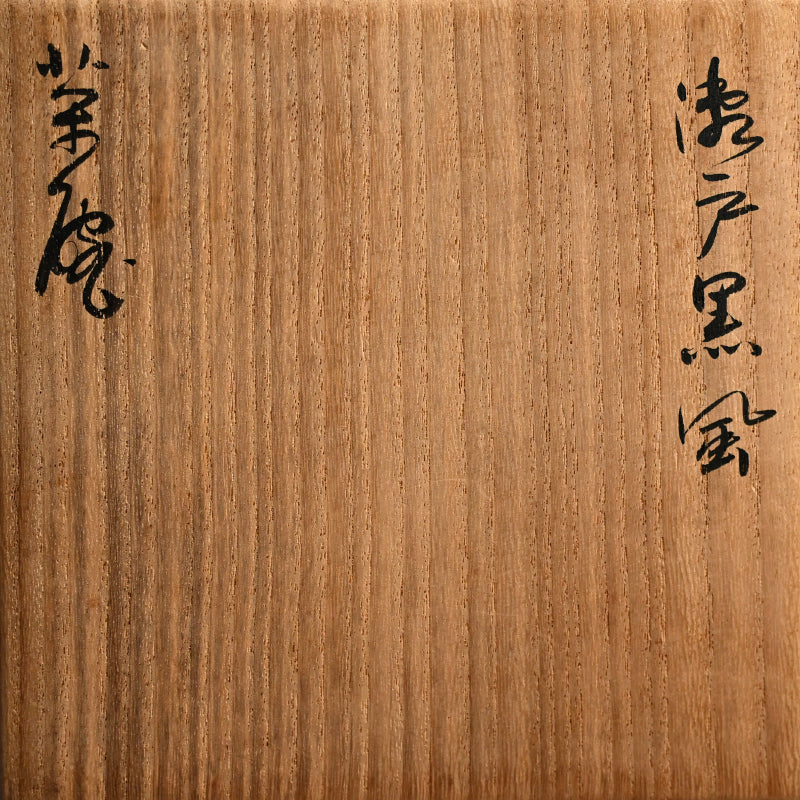 瀬戸黒風
茶碗